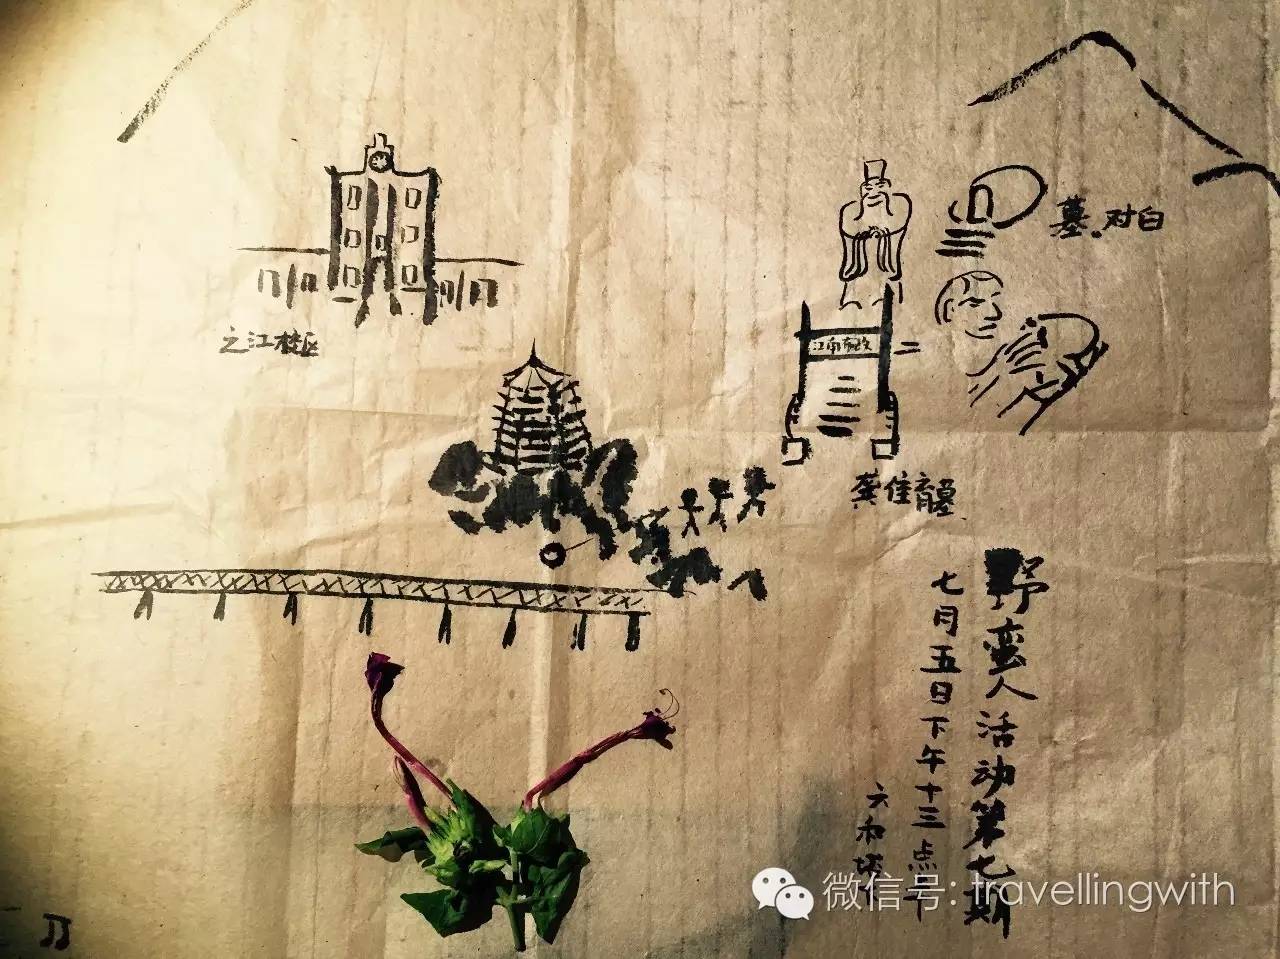 之江校区
墓.对白
江南布政
龚佳育墓
野蛮人活动第七期
七月五日下午十三点半
六和塔下
微信号: travellingwith